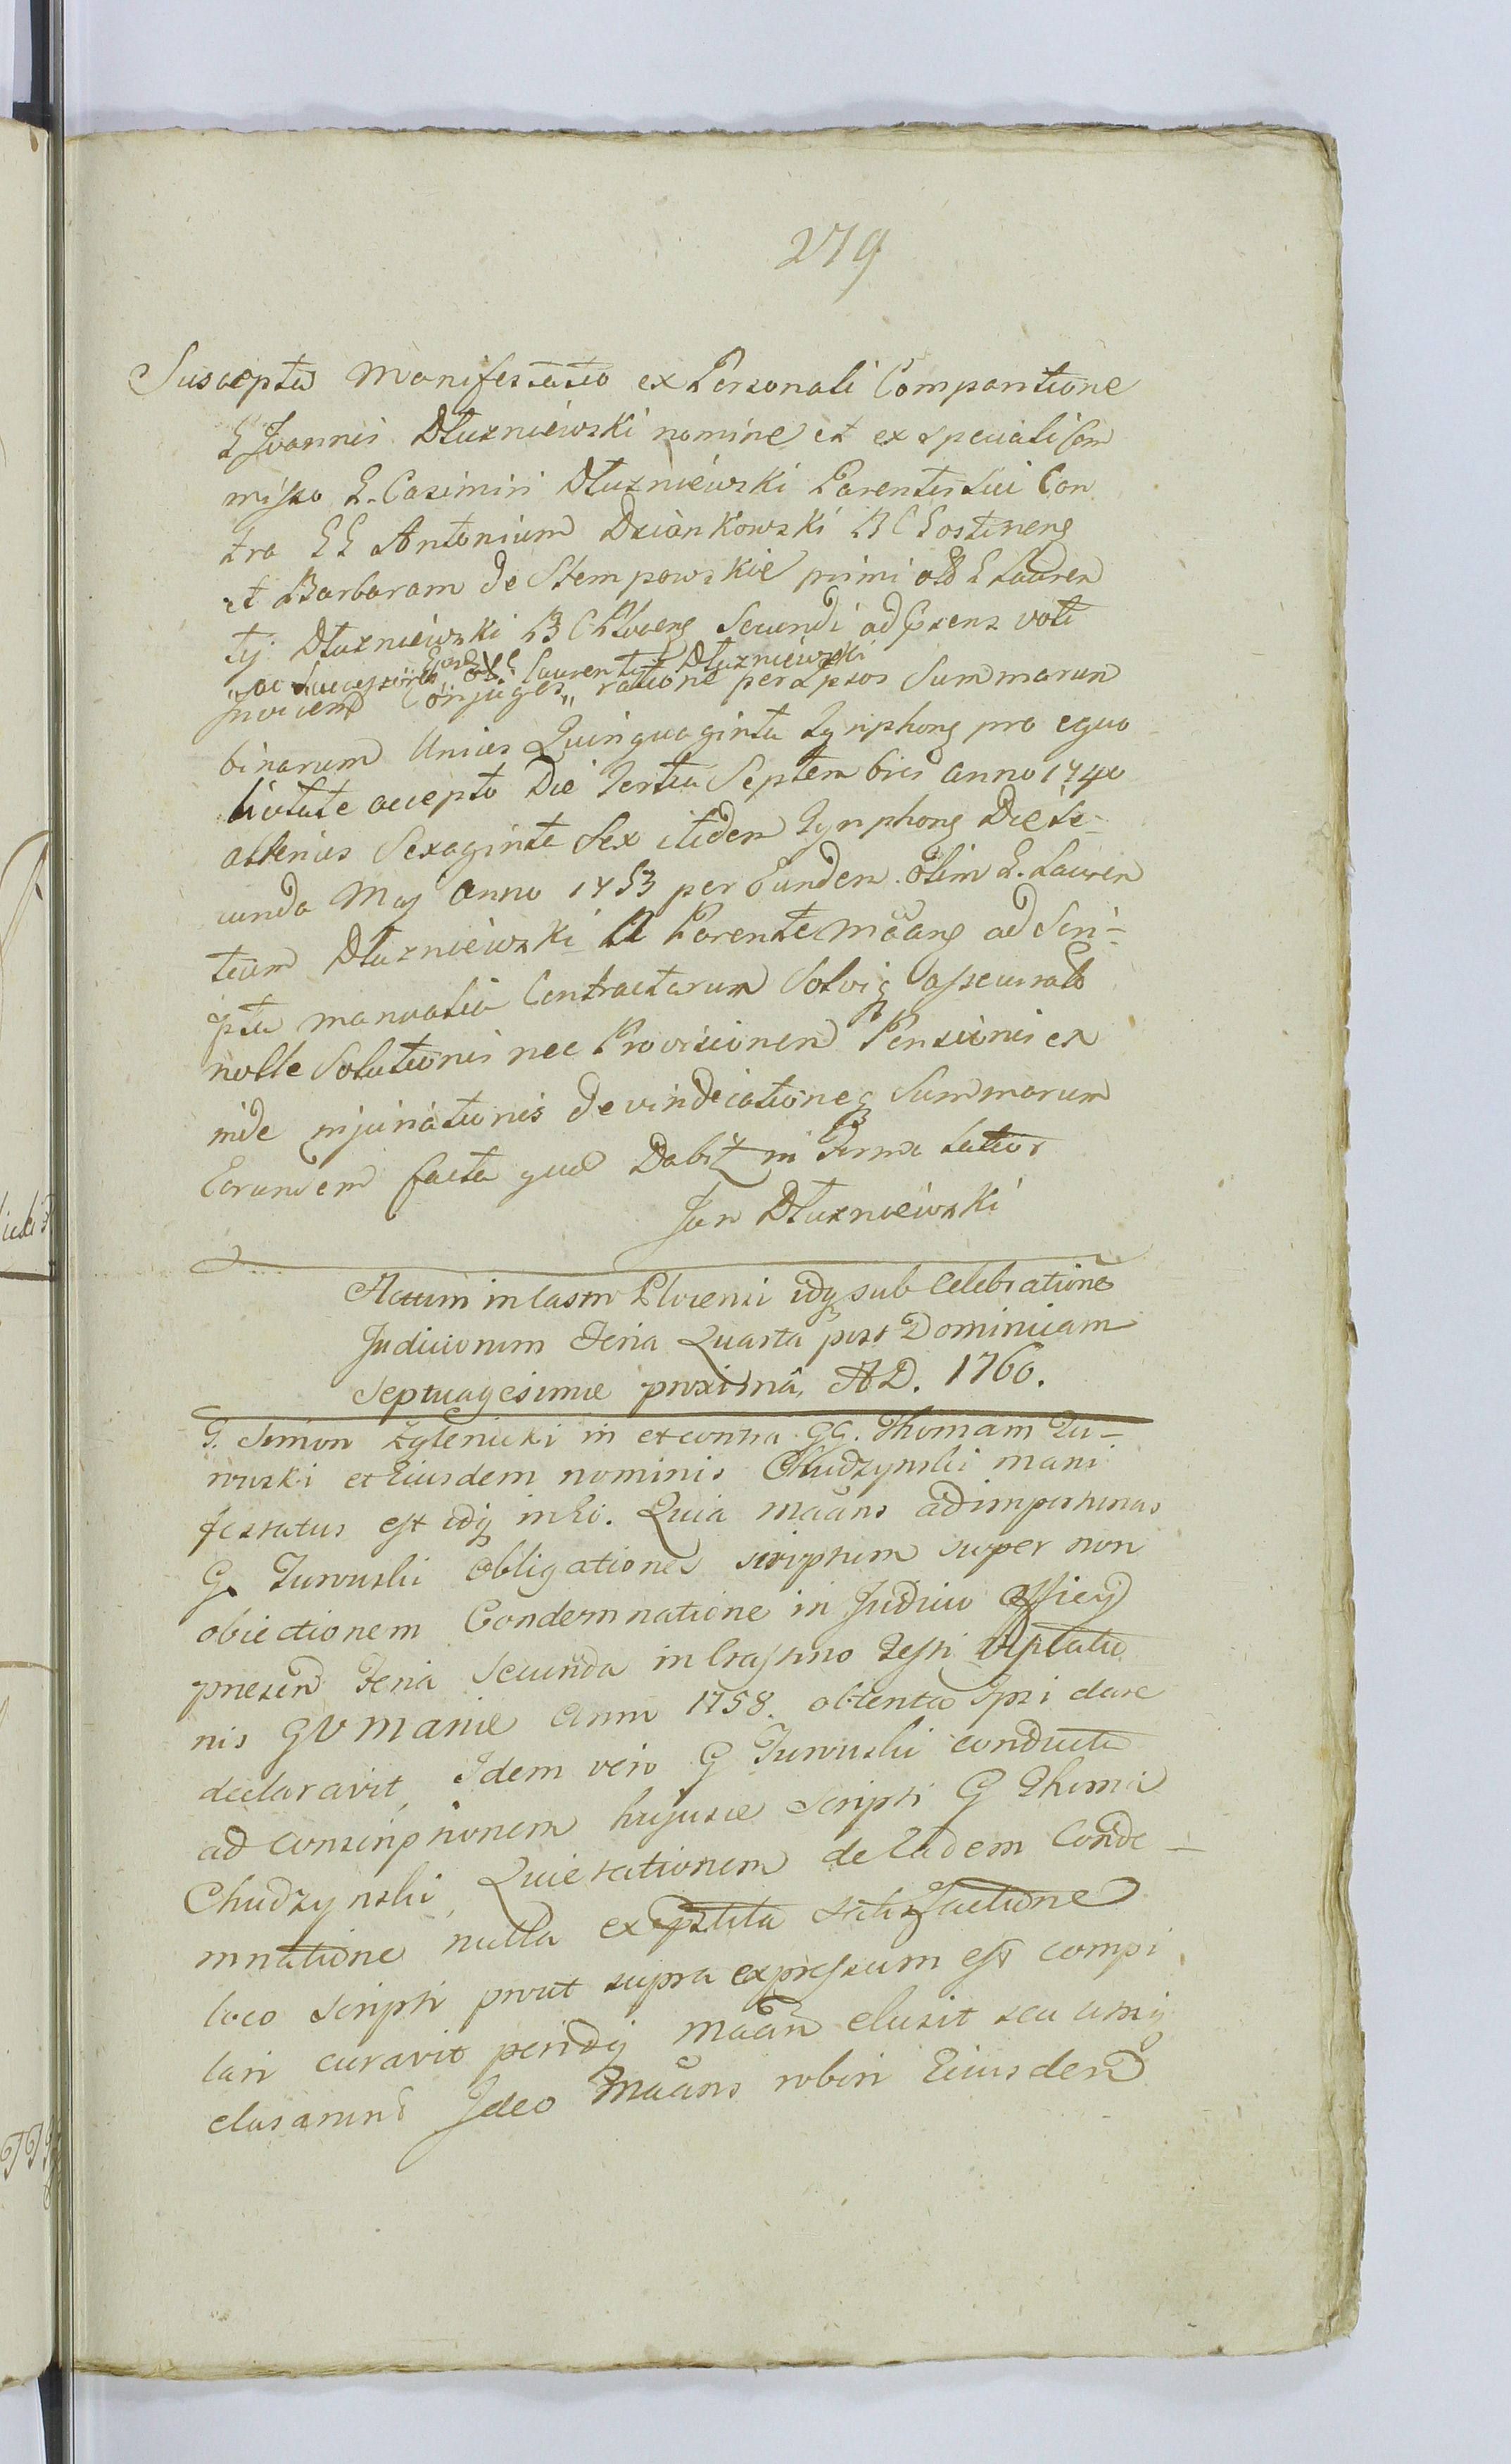 279
Suscepta Manifestatio ex Personali Comparitione
G Joannis Dłuzniewski nomine et ex speciali Com
misso G. Casimiri Dłuzniewski Parentis sui Con
tra GG Antonium Dziankowski B C Gostinens
et Barbaram de Stempowskie primi olo G Lauren
tij Dłuzniewski B C Plocens Secundi ad prens voti
„ac Successores Laurentij Dłuzniewski
Invicem Conjuges„ ratione per Ipsos Summarum
binarum Unius Quinquaginta Tynphons pro equo
accepto Die Tertia Septembris anno 1740
alterius Sexaginta Sex itidem Tynphons Die Se-
cunda Maij anno 1753 per Eundem olim G. Lauren
tium Dłuzniewski A Parente Maans ad Scri-
pta manualia Contractarum Solviq assecurato
nolle Solutionis nec Provisionem Pensionis ex
inde injuriationis devindicationeq Summarum
Earundem facta que Dabit in Forma Latior
Jan Dłuzniewski
Actum in Castro Plocensi idq sub Celebratione
Judiciorum Feria Quarta post Dominicam
Septuagesimae proximâ AD. 1760.
G. Simon Zylenicki in et contra GG. Thomam Tu-
rowski et Eiusdem nominis Chudzynski mani
festatus est idq in Eo. Quia Maans ad importunas
G. Turowski obligationes scriptum super non
obiectionem Condemnatione in Judicio Officij
presen Feria Secunda in Crastino Festi
nis GV Mariae Anno 1758. obtenta Ipsi dare
declaravit, Idem vero G Turowski conducta
ad conscriptionem hujusce Scripti G Thoma
Chudzynski, Quietationem de Eadem Conde-
mnatione nulla exstita satisfactione
loco Scripti prout supra expressum est compi
lari curavit peridq Maan elusit seu
eluserunt Ideo Maans robori Eiusdem